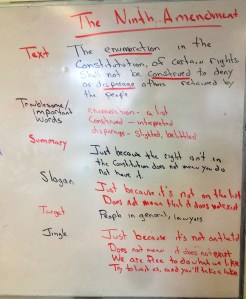 The Ninth Amendment
Text The enumeration in the
Constitution, of certain rights
Shall not be construed to deny
or disparage others retained by
the people
Troublesome/ Important Words
enumeration - a list
construed - interpreted
disparage - slighted, belittled
Summary
Just because the right isn't in
the Constitution does not mean you do
not have it.
Slogan
Just because it's not on the list
Does not mean that it does not exist
Target People in general, lawyers
Jingle Just because it's not on the list
Does not mean it does not exist
We are free to do what we like
Try to and you'll take a